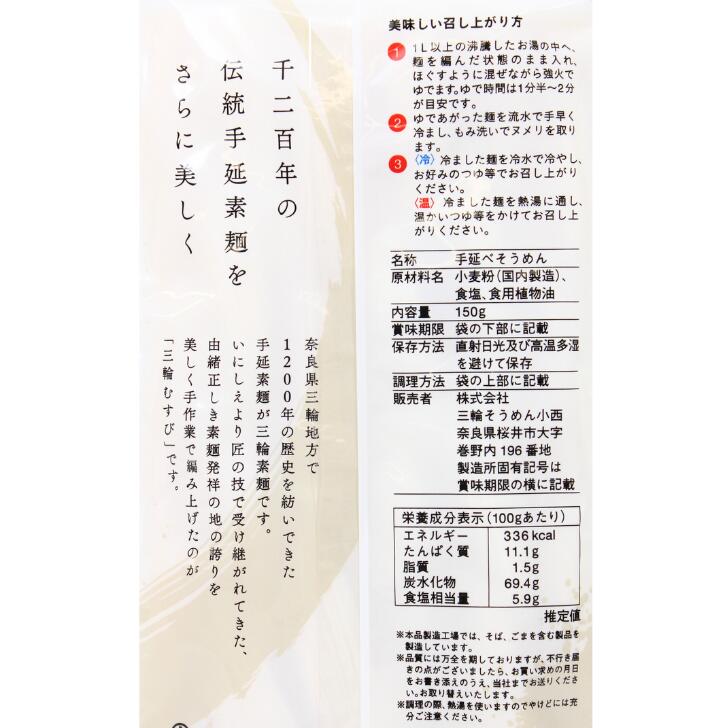 千二百年の
伝統手延素麺を
さらに美しく
奈良県三輪地方で
1200年の歴史を紡いできた
手延素麺が三輪素麺です。
いにしえより匠の技で受け継がれてきた、
由緒正しき素麺発祥の地の誇りを
美しく手作業で編み上げたのが
「三輪むすび」です。
美味しい召し上がり方
1 1L以上の沸騰したお湯の中へ、
麺を編んだ状態のまま入れ、
ほぐすように混ぜながら強火で
ゆでます。ゆで時間は1分半〜2分
が目安です。
2 ゆであがった麺を流水で手早く
冷まし、もみ洗いでヌメリを取り
ます。
3 〈冷〉冷ました麺を冷水で冷やし、
お好みのつゆ等でお召し上がり
ください。
〈温〉冷ました麺を熱湯に通し、
温かいつゆ等をかけてお召し上
がりください。
名称 手延べそうめん
原材料名 小麦粉(国内製造)、
食塩、食用植物油
内容量 150g
賞味期限 袋の下部に記載
保存方法 直射日光及び高温多湿
を避けて保存
調理方法 袋の上部に記載
販売者 株式会社
三輪そうめん小西
奈良県桜井市大字
巻野内196番地
製造所固有記号は
賞味期限の横に記載
栄養成分表示(100gあたり)
エネルギー 336kcal
たんぱく質 11.1g
脂質 1.5g
炭水化物 69.4g
食塩相当量 5.9g
推定値
※本品製造工場では、そば、ごまを含む製品を
製造しています。
※品質には万全を期しておりますが、不行き届
きの点がございましたら、お買い求めの月日
をお書き添えのうえ、当社までお送りくださ
い。お取り替えいたします。
※調理の際、熱湯を使いますのでやけどには充
分ご注意ください。